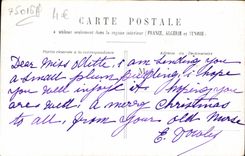 75016A 4€
CARTE POSTALE
A utiliser seulement dans le régime intérieur (FRANCE, ALGÉRIE et TUNISIE)
Partie réservée à la correspondance
Adresse du Destinataire
Dear Miss, i am sending you
a small plum pudding i hope
you will injoy it hopeing you
are well a merry Christmas
to all, from your old nurse
E.